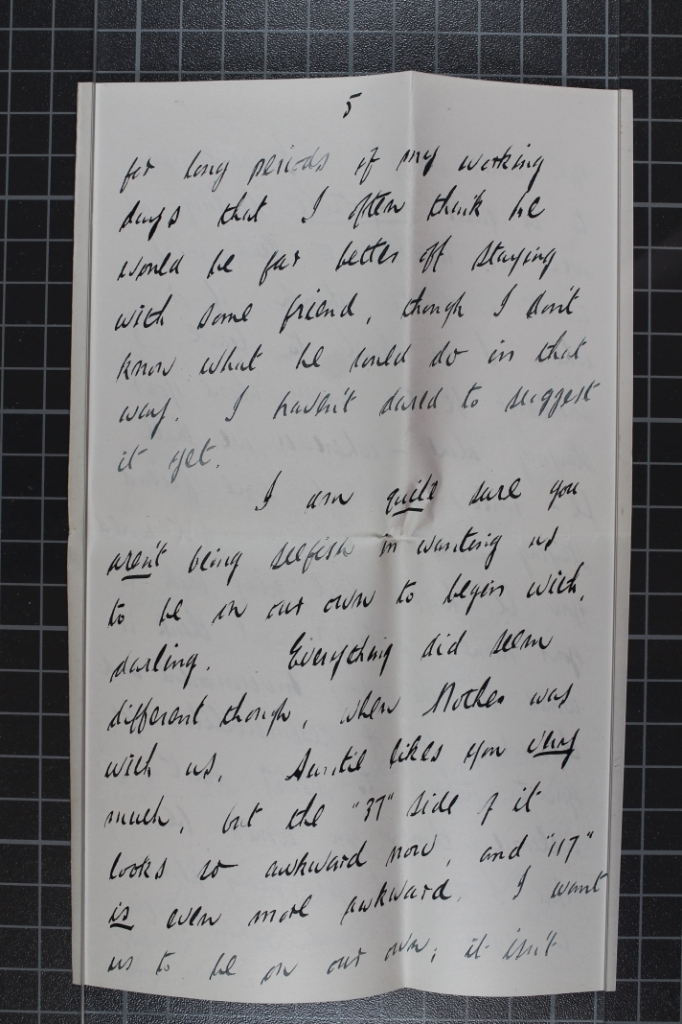 5
for long periods of my working
days that I often think he
would be far better off staying
with some friend, though I don't
know what he could do in that
way. I haven't dared to suggest
it yet.
I am quite sure you
aren't being selfish in wanting us
to be on our own to begin with,
darling. Everything did seem
different though, when Mother was
with us. Auntie likes you very
much, but the "37" side of it
looks so awkward now, and "117"
is even more awkward. I want
us to be on our own; it isn't